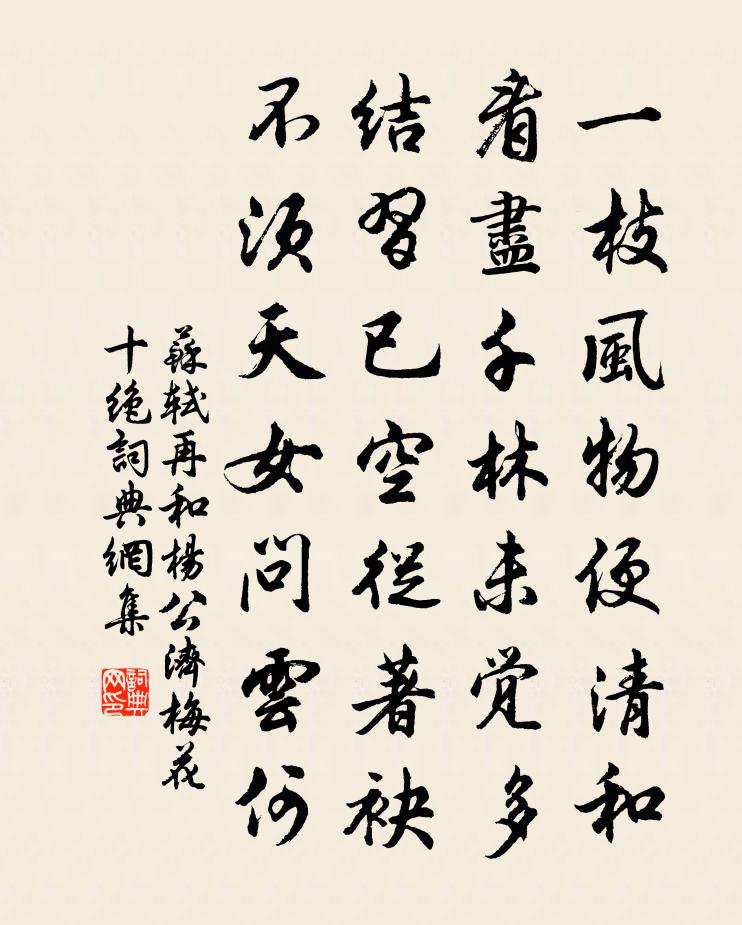 一枝風物便清和
看盡千林未覺多
結習已空從著袂
不須天女問雲何
蘇軾再和楊公濟梅花
十絕詞典網集
詞典
网印